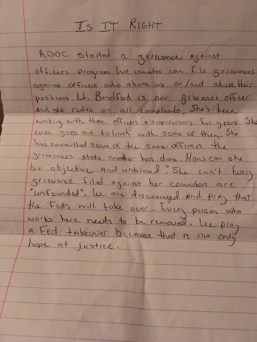 Is It Right
ADOC started a grievance against
officers program but inmates can file grievances
against officers who abuse us or/and abuse their
positions. Lt. Bindford is our grievance officer
and she rules on all complaints. She's been
working with these officers & supervisors for years. She
even goes out to lunch with some of them. She
has committed some of the same offenses the
grievances state another has done. How can she
be objective and unbiased? She can't. Every
grievance filed against her coworkers are
"unfounded". We are discouraged and pray that
the Feds will take over. Every person who
works here needs to be removed. We pray
a Fed takeover because that is our only
hope at justice.